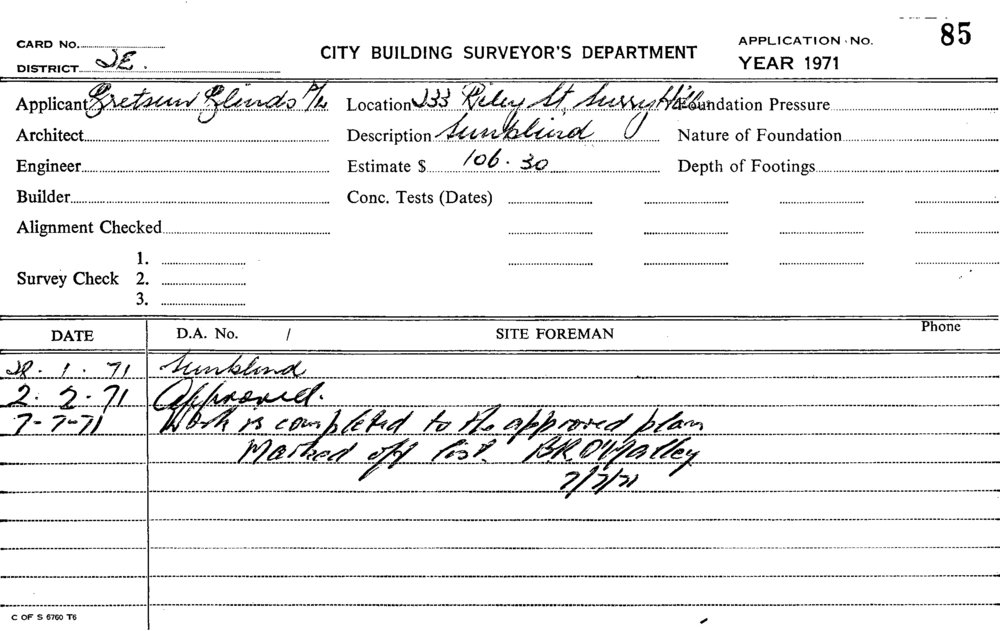 CARD No.
DISTRICT SE.
CITY BUILDING SURVEYOR'S DEPARTMENT
APPLICATION No. 85
YEAR 1971
Applicant Blinds P/L Location 333 Riley St, Surry Hills Foundation Pressure
Architect Description Sunblind Nature of Foundation
Engineer Estimate $ 106.30 Depth of Footings
Builder Conc. Tests (Dates)
Alignment Checked
1.
Survey Check 2.
3.
DATE D.A. No. / SITE FOREMAN Phone
28.1.71 Sunblind
2.2.71 Approved.
7-7-71 Work is completed to the approved plan
Marked off list. B.R.O'Malley
7/7/71
C OF S 6760 T6